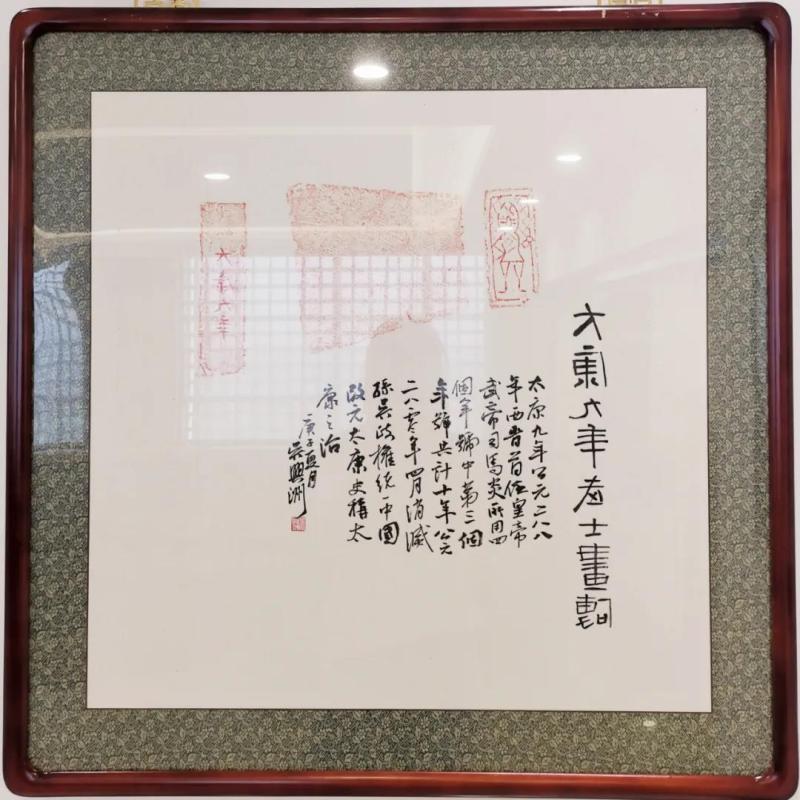 大康九年武士畫甎
太康九年公元二八八
年西晉首任皇帝
武帝司馬炎所用四
個年號中第三個
年號共計十年公元
二八零年四月消滅
孫吳政權統一中國
改元太康史稱太
康之治
庚子夏月
吳興洲